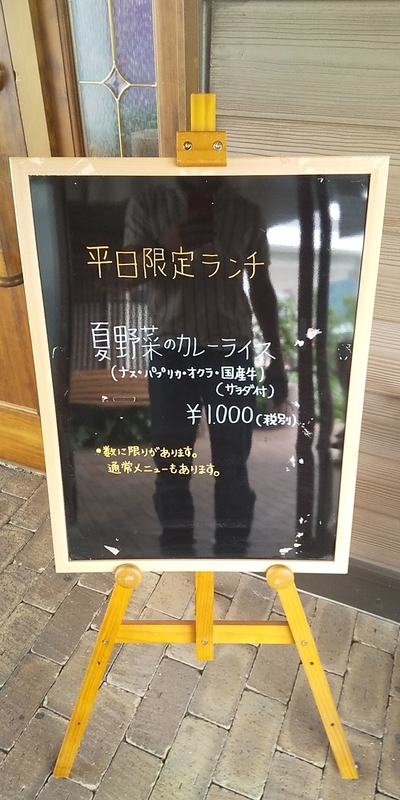 平日限定ランチ
夏野菜のカレーライス
(ナス・パプリカ・オクラ・国産牛)
(サラダ付)
¥1.000(税別)
•数に限りがあります。
通常メニューもあります。